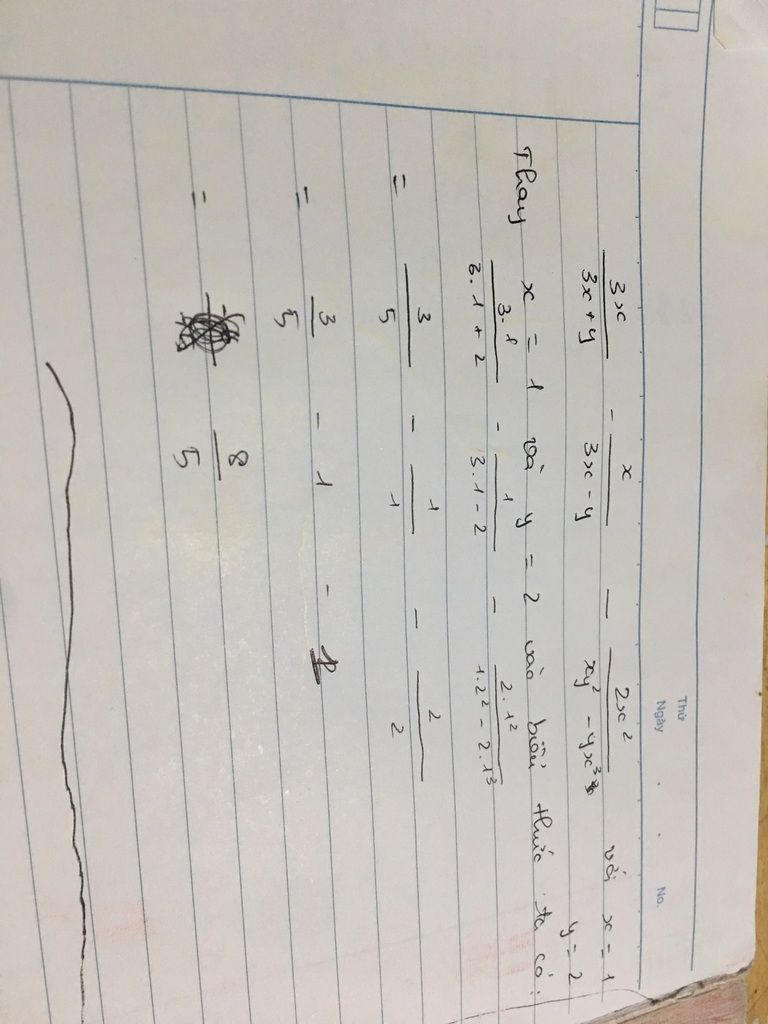 Thứ
Ngày . . No.
3x/(3x + y) - x/(3x - y) - 2x²/(xy² - yx³) với x = 1
y = 2
Thay x = 1 và y = 2 vào biểu thức ta có:
3.1/(3.1 + 2) - 1/(3.1 - 2) - 2.1²/(1.2² - 2.1³)
= 3/5 - 1/1 - 2/2
= 3/5 - 1 - 1
= 8/5